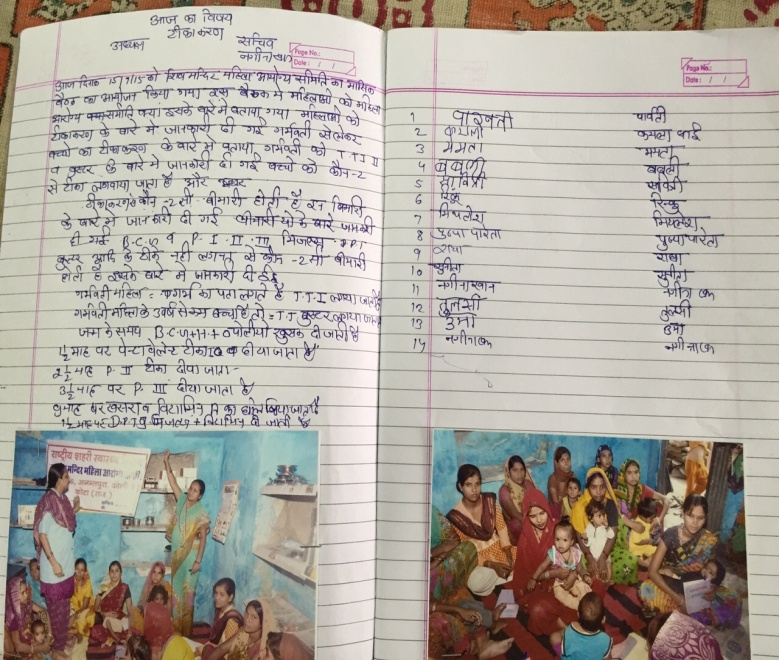 आज का विषय
टीकाकरण
अध्यक्ष सचिव
नगीना खान
Page No.:
Date: / /
आज दिनांक 15/9/15 को शिव मन्दिर महिला आरोग्य समिति की मासिक
बैठक का आयोजन किया गया इस बैठक मे महिलाओ को महिला
आरोग्य समिति क्या इसके बारे मे बताया गया महिलाओ को
टीकाकरण के बारे मे जानकारी दी गई गर्भवती से लेकर
बच्चो का टीकाकरण के बारे मे बताया, गर्भवती को T T I II
व बुस्टर के बारे मे जानकारी दी गई बच्चो को कौन-2
से टीका लगवाया जाता है और
कौन-2 सी बीमारी होती है इन बिमारी
के बारे मे जानकारी दी गई बीमारीयो के बारे जानकारी
दी गई B.C.G व P-I-II-III मिजल्स DPT
बुस्टर आदि के टीके नही लगाने से कौन-2 सी बीमारी
होती है इसके बारे मे जानकारी दी गई
गर्भवती महिला = गर्भ का पता लगते है T.T.I लगाया जाता है
गर्भवती महिला के 3 वर्ष से कम बच्चा है तो = T.T बुस्टर लगाया जाता
जन्म के समय B.C.G + H + 0 पोलीयो खुराक दी जाती है
1½ माह पर पेन्टावेलेन्ट टीका दीया जाता है
2½ माह P. II टीका दीया जाता -
3½ माह पर P. III दीया जाता है
9 माह पर खसरा व विटामिन A का डोज दिया जाता है
1½ D.P.T.B मिजल्स + विटामिन दी जाती है
राष्ट्रीय शहरी स्वास्थ्य
मन्दिर महिला आरोग्य
कोटा (राज.)
Page No.:
Date: / /
1 पारवती पार्वती
2 कमला बाई
3 ममता ममता
4 बबली बबली
5 सावित्री सावित्री
6 रिंकू रिन्कु
7 मिथलेश मिथलेश
8 पुष्पा पारेता पुष्पा पारेता
9 राधा राधा
10 सुनीता सुनीता
11 नगीना खान नगीना खान
12 तुलसी तुलसी
13 उमा उमा
14 नगीना खान नगीना खान